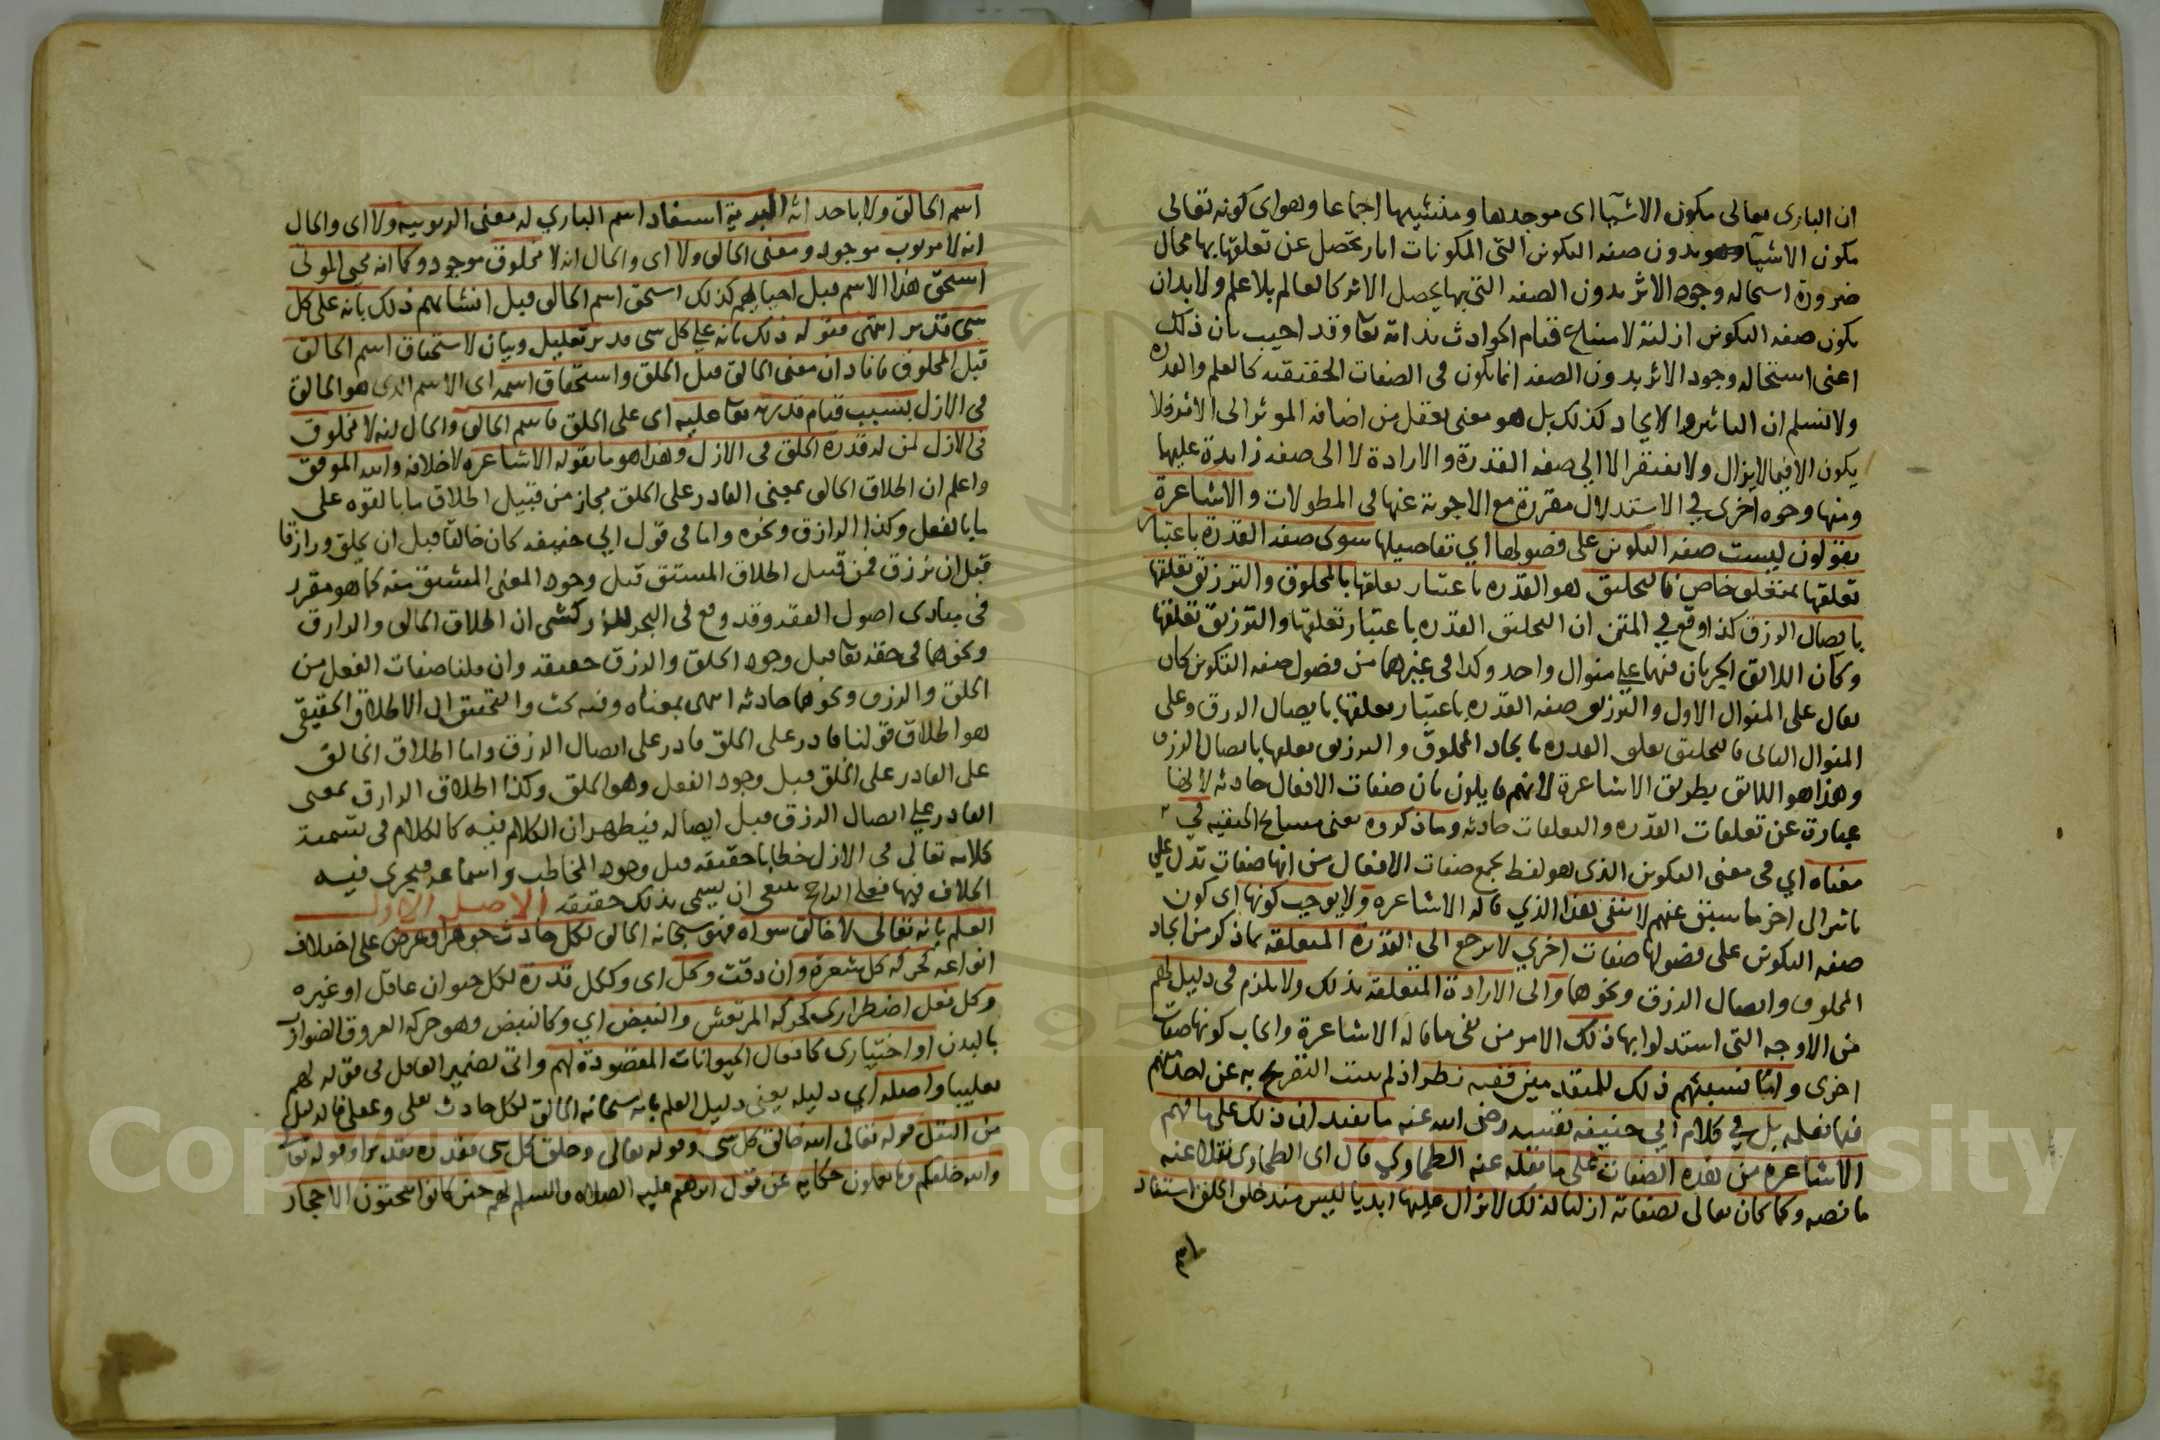 ان البارى تعالى مكون الاشيآ اى موجدها ومنشيها اجماعا وهو اى كونه تعالى
مكون الاشيآ بدون صفه التكوين التى المكونات اثار تحصل عن تعلقها بها محال
ضرورة استحاله وجود الاثر بدون الصفه التى بها يحصل الاثر كالعالم بلا علم ولا بد ان
يكون صفه التكوين ازلية لامتناع قيام الحوادث بذاته تعا وقد اجيب بان ذلك
اعنى استحاله وجود الاثر بدون الصفه انما يكون فى الصفات الحقيقيه كالعلم والقدره
ولا نسلم ان التاثير والايجاد كذلك بل هو معنى يعقل من اضافه الموثر الى الاثر فلا
يكون الا فيما لا يزال ولا يفتقر الا الى صفه القدرة والارادة لا الى صفه زايدة عليهما
ومنها وجوه اخرى فى الاستدلال مقررة مع الاجوبة عنها فى المطولات والاشاعرة
يقولون ليست صفه التكوين على فصولها اي تفاصيلها سوى صفه القدرة باعتبار
تعلقها بمتعلق خاص فالتخليق هو القدره باعتبار تعلقها بالمخلوق والترزيق تعلقها
بايصال الرزق كذا وقع في المتن ان التخليق القدره باعتبار تعلقها والترزيق تعلقها
وكان اللائق الجريان فيهما على منوال واحد وكذا فى غيرهما من فصول صفه التكوين كان
يقال على المنوال الاول والترزيق صفه القدره باعتبار تعلقها بايصال الرزق وعلى
المنوال الثانى فالتخليق تعلق القدره بايجاد المخلوق والترزيق تعلقها بايصال الرزق
وهذا هو اللائق بطريق الاشاعرة لانهم قايلون بان صفات الافعال حادثه لانها
عبارة عن تعلقات القدره والتعلقات حادثه وما ذكروه يعنى مشايخ الحنفيه في
معناه اي فى معنى التكوين الذى هو لفظ يجمع صفات الافعال من انها صفات تدل على
تاثير الى اخر ما سبق عنهم لا ينفى هذا الذي قاله الاشاعره ولا يوجب كونها اى كون
صفه التكوين على فصولها صفات اخري لا ترجع الى القدرة المتعلقه بما ذكر من ايجاد
المخلوق وايصال الرزق ونحوهما والى الارادة المتعلقه بذلك ولا يلزم فى دليل لهم
من الاوجه التى استدلوا بها ذلك الامر من نفى ما قاله الاشاعرة وايجاب كونها صفات
اخرى واما نسبتهم ذلك للمتقدمين ففيه نظر اذ لم يثبت التصريح به عن احد منهم
فيما نعلمه بل في كلام ابي حنيفه نفسه رضى الله عنه ما يفيد ان ذلك على ما فهم
الاشاعره من هذه الصفات على ما نقله عنه الطحاوي قال اى الطحاوى نقلا عنه
ما نصه وكما كان تعالى بصفاته ازليا كذلك لا يزال عليها ابديا ليس منذ خلق الخلق استفاد
اسم
اسم الخالق ولا باحداثه البرية استفاد اسم الباري له معنى الربوبيه ولا اى والحال
انه لا مربوب موجود ومعنى الخالق ولا اى والحال انه لا مخلوق موجود وكما انه محيى الموتى
استحق هذا الاسم قبل احيائهم كذلك استحق اسم الخالق قبل انشائهم ذلك بانه على كل
شى قدير انتهى فقوله ذلك بانه على كل شى قدير تعليل وبيان لاستحقاق اسم الخالق
قبل المخلوق فافاد ان معنى الخالق قبل الخلق واستحقاق اسمه اى الاسم الذى هو الخالق
فى الازل بسبب قيام قدرته تعا عليه اى على الخلق فاسم الخالق والحال انه لا مخلوق
فى الازل لمن له قدرة الخلق فى الازل وهذا هو ما يقوله الاشاعره لا خلافه والله الموفق
واعلم ان اطلاق الخالق بمعنى القادر على الخلق مجاز من قبيل اطلاق ما بالقوه على
ما بالفعل وكذا الرازق ونحوه واما فى قول ابي حنيفه كان خالقا قبل ان يخلق ورازقا
قبل ان يرزق فمن قبيل اطلاق المشتق قبل وجود المعنى المشتق منه كما هو مقرر
فى مبادى اصول الفقه وقد وقع فى البحر للزركشى ان اطلاق الخالق والرازق
ونحوهما فى حقه تعا قبل وجود الخلق والرزق حقيقه وان قلنا صفات الفعل من
الخلق والرزق ونحوهما حادثه انتهى بمعناه وفيه بحث والتحقيق ان الاطلاق الحقيقى
هو اطلاق قولنا قادر على الخلق قادر على ايصال الرزق واما اطلاق الخالق
على القادر على الخلق قبل وجود الفعل وهو الخلق وكذا اطلاق الرازق بمعنى
القادر على ايصال الرزق قبل ايصاله فيظهر ان الكلام فيه كالكلام فى تسمية
كلامه تعالى فى الازل خطابا حقيقه قبل وجود المخاطب واسماعه فيجرى فيه
الخلاف فيها فعلى الراجح ينبغى ان يسمى بذلك حقيقه الاصل الاول
العلم بانه تعالى لا خالق سواه فهو سبحانه الخالق لكل حادث جوهر او عرض على اختلاف
انواعه كحركه كل شعرة وان دقت وكل اى وككل قدرة لكل حيوان عاقل او غيره
وكل فعل اضطرارى كحركه المرتعش والنبض اي وكالنبض وهو حركه العروق الضوارب
بالبدن او اختيارى كافعال الحيوانات المقصودة لهم واتى بضمير العاقل فى قوله لهم
تغليبا واصله اي دليله يعنى دليل العلم بانه سبحانه الخالق لكل حادث نقلى وعقلى فالدليل
من النقل قوله تعالى الله خالق كل شى وقوله تعالى وخلق كل شى فقدره تقديرا وقوله تعا
والله خلقكم وما تعملون حكايه عن قول ابرهيم عليه الصلاه والسلام لهم حين كانوا ينحتون الاحجار
Copyright © King Saud University